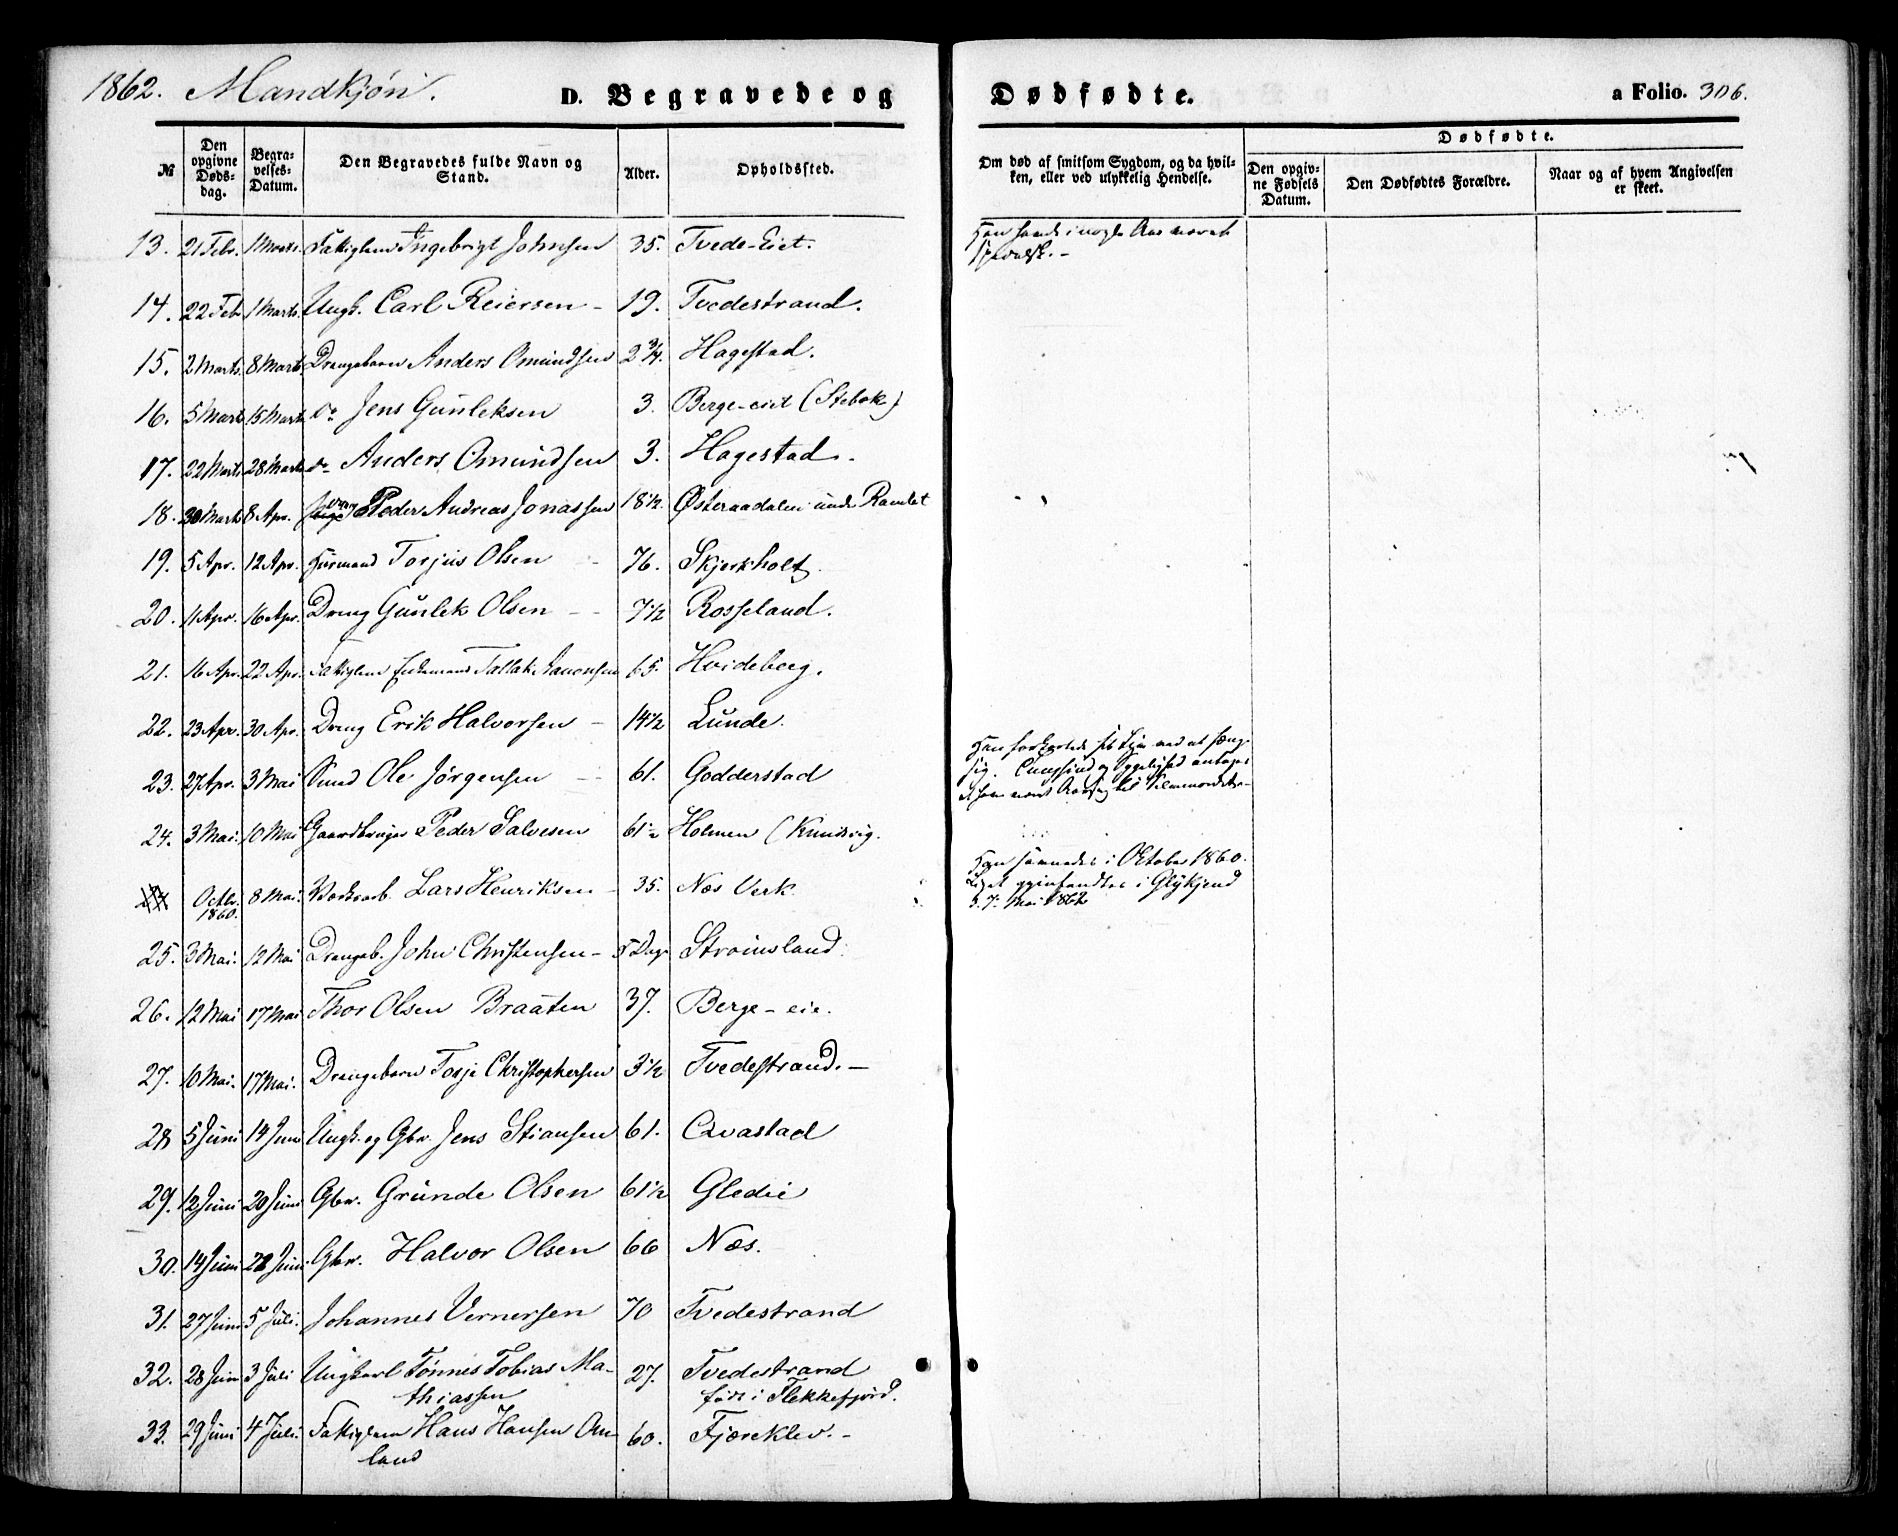 1862. Mandkjøn. D. Begravede og Dødfødte. a Folio. 306.
Dødfødte.
№ Den opgivne Døds-dag. Begra-velses-Datum. Den Begravedes fulde Navn og Stand. Alder. Opholdssted. Om død af smitsom Sygdom, og da hvil-ken, eller ved ulykkelig Hendelse. Den opgiv-ne Fødsels Datum. Den Dødfødtes Forældre. Naar og af hvem Angivelsen er skeet.
13. 21 Febr. 1 Marts. Fattiglem Ingebrigt Johnsen 35. Tvede-Eiet. Han havde i nogle Aar været
spedalsk. -
14. 22 Feb 1 Marts. Ungk. Carl Reiersen - 19. Tvedestrand.
15. 2 Marts. 8 Marts. Drengebarn Anders Omundsen 2 3/4. Hagestad.
16. 5 Marts 15 Marts do Jens Gunleksen 3. Berge-eiet (Stebok)
17. 22 Marts 28 Marts do Anders Omundsen 3. Hagestad.
18. 30 Marts 8 Apr. Peder Andreas Jonassen 18 1/2. Østeraadalen under Ramlet
19. 5 Apr. 12 Apr. Huusmand Torjus Olsen 76. Skjerkholt.
20. 11 Apr. 16 Apr. Dreng Gunlek Olsen - - 7 1/2 Rosseland.
21. 16 Apr. 22 Apr. Fattiglem Enkemand Tallak 65. Hvideberg.
22. 23 Apr. 30 Apr. Dreng Erik Halvorsen - 14 1/2 Lunde.
23. 27 Apr. 3 Mai Ole Jørgensen - 61. Godderstad Han forkortede sit Liv ved at hænge
sig. Tungsind og Sygelighed antages
at have været Aarsag til Selvmordet. -
24. 3 Mai. 10 Mai Gaardbruger Peder Salvesen 61 1/2 Holmen (Knudsvig.
Octbr. 1860. 8 Mai. Lars Henriksen - 35. Næs Verk. Han savnedes i Oktober 1860.
Liget gjenfandtes i Glykjend
d. 7. Mai 1862
25. 3 Mai. 12 Mai Drengeb. John Christensen - 5 Dage Stromsland.
26. 12 Mai 17 Mai Thor Olsen Braaten 37. Berge-eie.
27. 10 Mai. 17 Mai. Drengebarn Torje Christophersen 3 1/2 Tvedestrand. -
28 5 Juni 14 Juni Ungk. og Gbr. Jens Stiansen 61. Qvastad
29. 12 Juni 20 Juni Gbr. Grunde Olsen 61 1/2 Gledie
30. 14 Juni 28 Juni Gbr. Halvor Olsen 66 Næs.
31. 27 Juni 5 Juli. Johannes Vernersen 70 Tvedestrand
32. 28 Juni 3 Juli Ungkarl Tønnes Tobias Ma- 27. Tvedestrand
thiassen født i Flekkefjord.
33. 29 Juni 4 Juli. Fattiglem Hans Hansen Om- 60. Fjæreklev. -
land